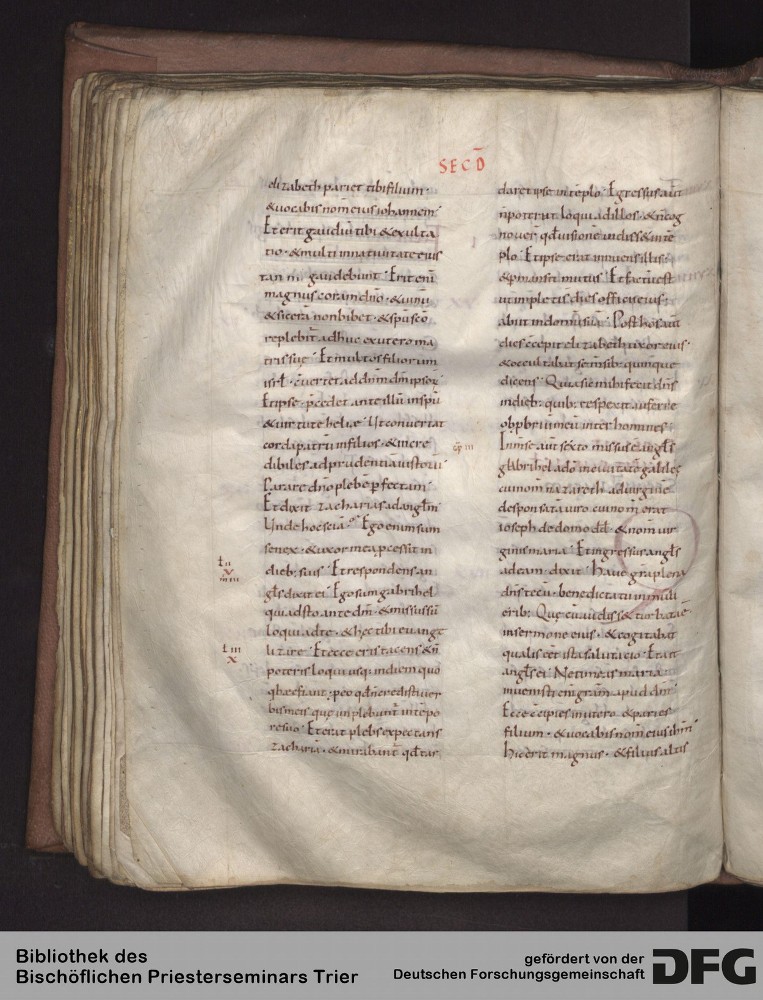 SECD̄
elizabeth pariet tibi filium·
& uocabis nom̄ eius iohannem·
Et erit gaudiū tibi & exulta
tio· & multi in natiuitate eius
gaudebunt· Erit enī
magnus coram dn̄o· & uinū
& sicera non bibet· & sp̄u sc̄o
replebit̄ adhuc ex utero ma
tris suę· Et multos filiorum
isrl̄· cuertet ad dn̄m dm̄ ipsoꝝ
Et ipse p̄cedet ante illū in sp̄u
& uirtute heliæ· Ut conuertat
corda patrū in filios· & incre
dibiles ad prudentiā iustorū·
Parare dn̄o plebē ꝑfectam·
Et dixit zacharias ad angl̄m·
Unde hoc sciā· Ego enim sum
senex· & uxor mea p̄cessit in
dieb; suis· Et respondens an
gl̄s dixit ei· Ego sum gabrihel
qui adsto ante dm̄· & missus sū
loqui ad te· & hęc tibi euange
lizare· Et ecce eris tacens & n̄
poteris loqui usq; in diem quo
hæc fiant· ꝓ eo qđ n̄ credisti uer
bis meis quę implebunt̄ in tēpo
re suo· Et erat plebs expectans
zachariā· & mirabant̄ qđ tar
t̄ II
V
t̄ III
X
daret ipse in tēplo· Egressus aūt
n̄ poterat loqui ad illos· & cog
nouer̄ qđ uisionē uidiss& in tē
plo· Et ipse erat innuens illis·
& ꝑmansit mutus· Et factū est
ut impleti s̄ dies officii eius·
abiit in domū suā· Post hos aūt
dies cōcepit elizabeth uxor eius·
& occultabat se msib; quinque
dicens· Quia sic mihi fecit dn̄s
in dieb; quib; respexit auferre
obꝓbriū meū inter homines·
In mse aūt sexto missus ē angl̄s
gabrihel a dō in ciuitatē galileę
cui nom̄ nazareth ad uirginē
desponsatā uiro cui nom̄ erat
ioseph de domo dd̄· & nom̄ uir
ginis maria· Et ingressus angl̄s
ad eam dixit· Haue gr̄a plena
dn̄s tecū· benedicta tu in muli
erib; Quę cū audiss& turbata ē
in sermone eius· & cogitabat
qualis eet ista salutatio· Et ait
angl̄s ei· Ne timeas maria·
inuenisti enī gr̄am apud dm̄·
Ecce cōcipies in utero & paries
filium· & uocabis nom̄ eius ih̄m
Hic erit magnus· & filius altis
cp̄ III
Bibliothek des
Bischöflichen Priesterseminars Trier
gefördert von der
Deutschen Forschungsgemeinschaft
DFG